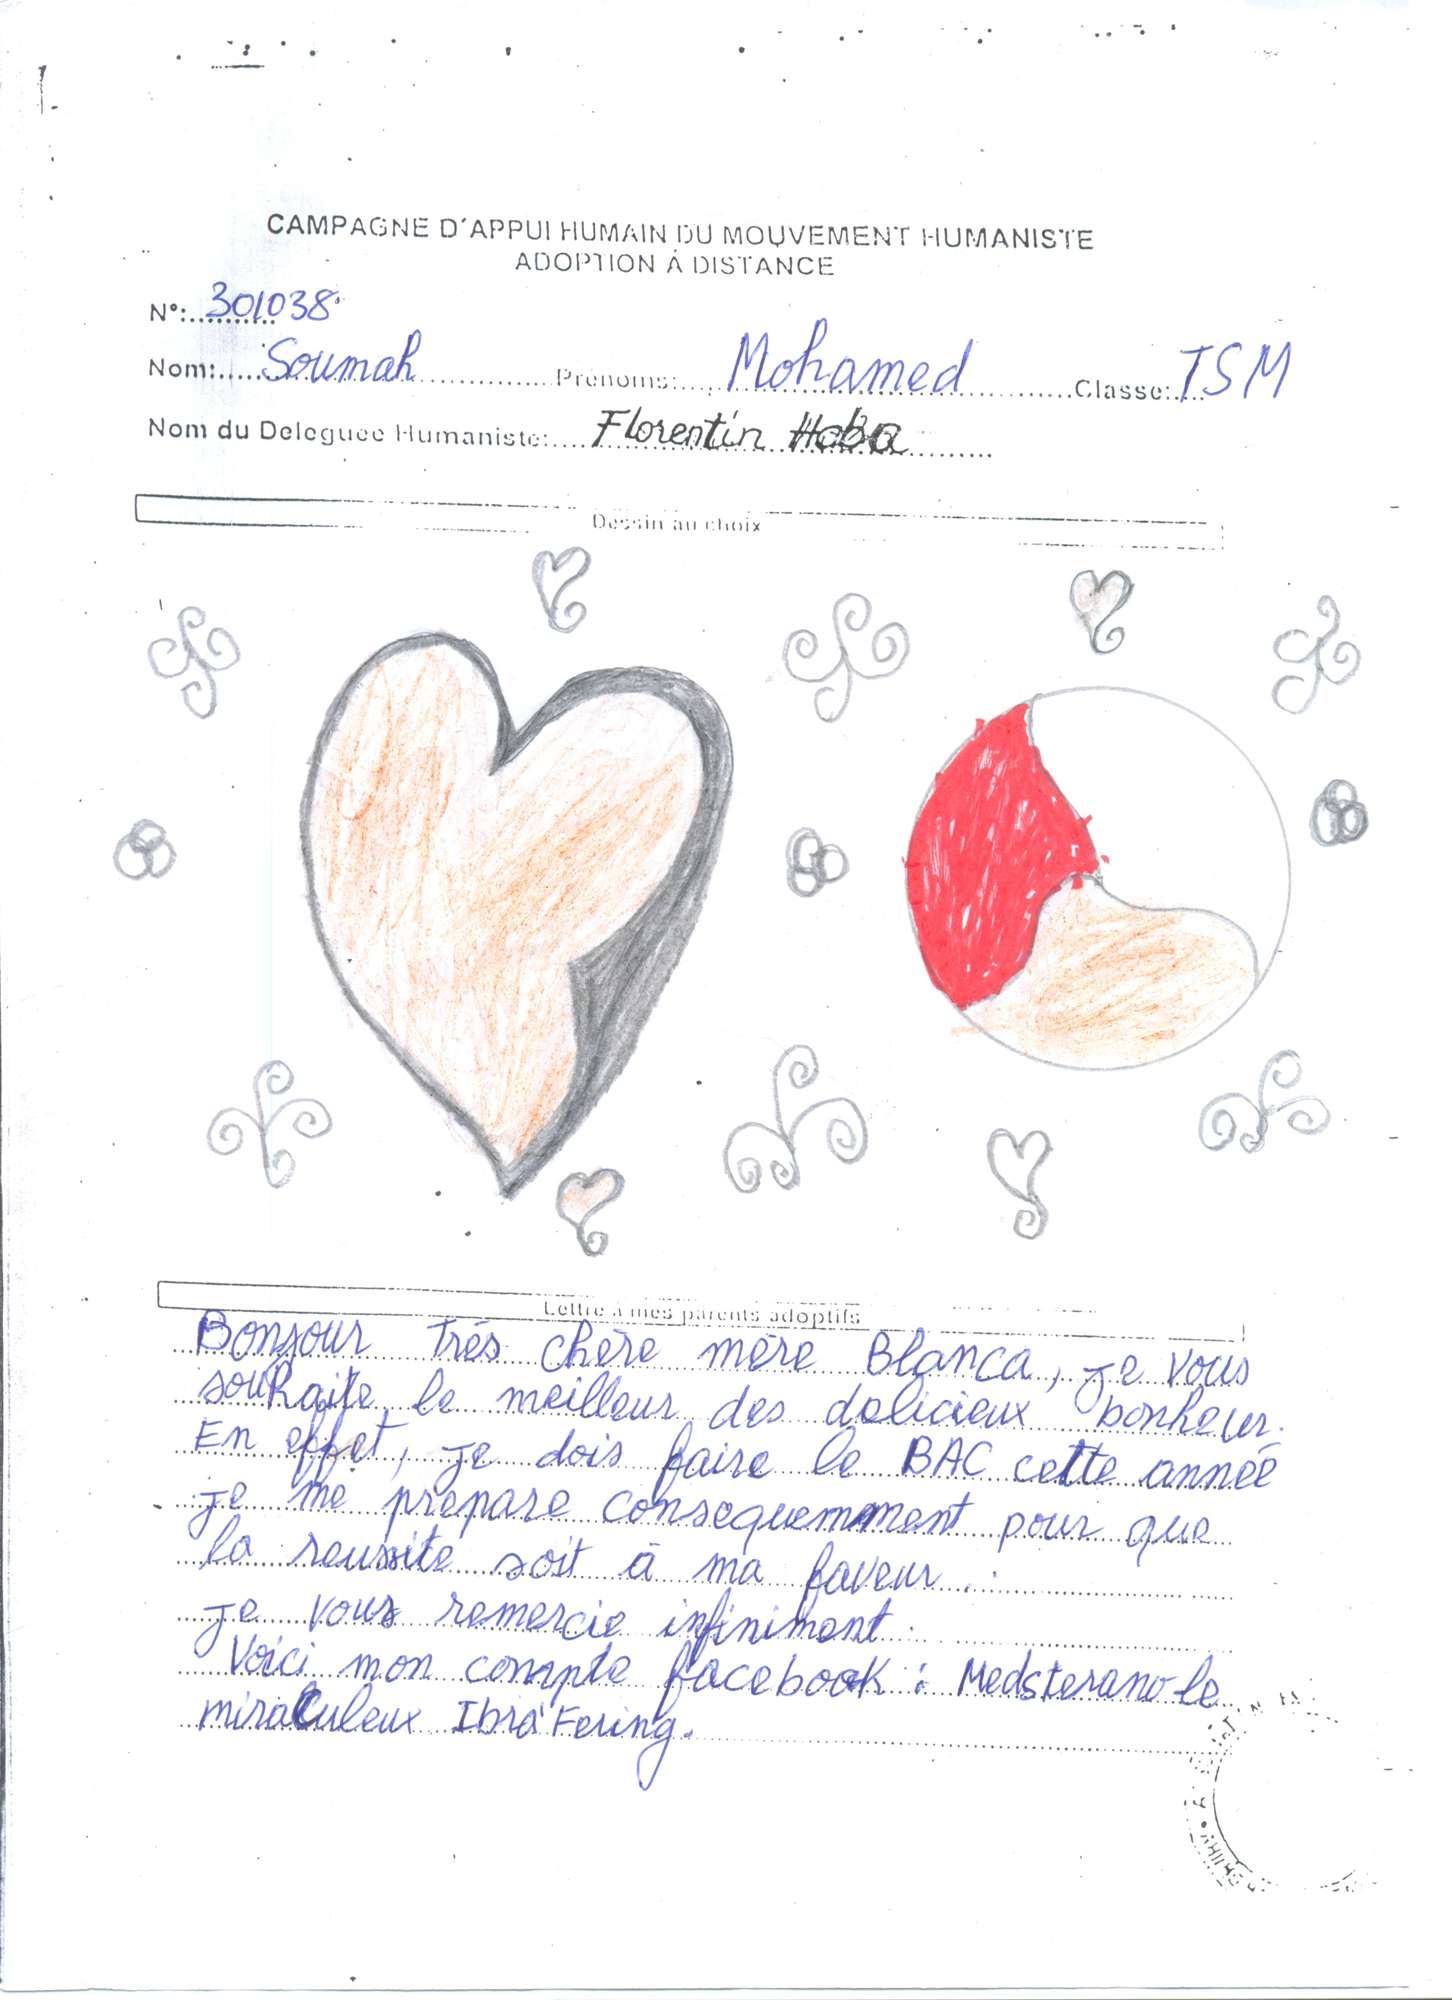 CAMPAGNE D'APPUI HUMAIN DU MOUVEMENT HUMANISTE
ADOPTION À DISTANCE
N°:..........301038
Nom:.....Soumah.............Prénoms:.....Mohamed............Classe:....TSM
Nom du Deleguee Humaniste:....Florentin Haba..........
Dessin au choix
Lettre à mes parents adoptifs
Bonjour Très chère mère Blanca, je vous
souhaite le meilleur des delicieux bonheur.
En effet, je dois faire le BAC cette année
je me prepare consequemment pour que
la reussite soit à ma faveur.
je vous remercie infiniment.
Voici mon compte facebook : Medsterano le
miraculeux Ibra Fering.